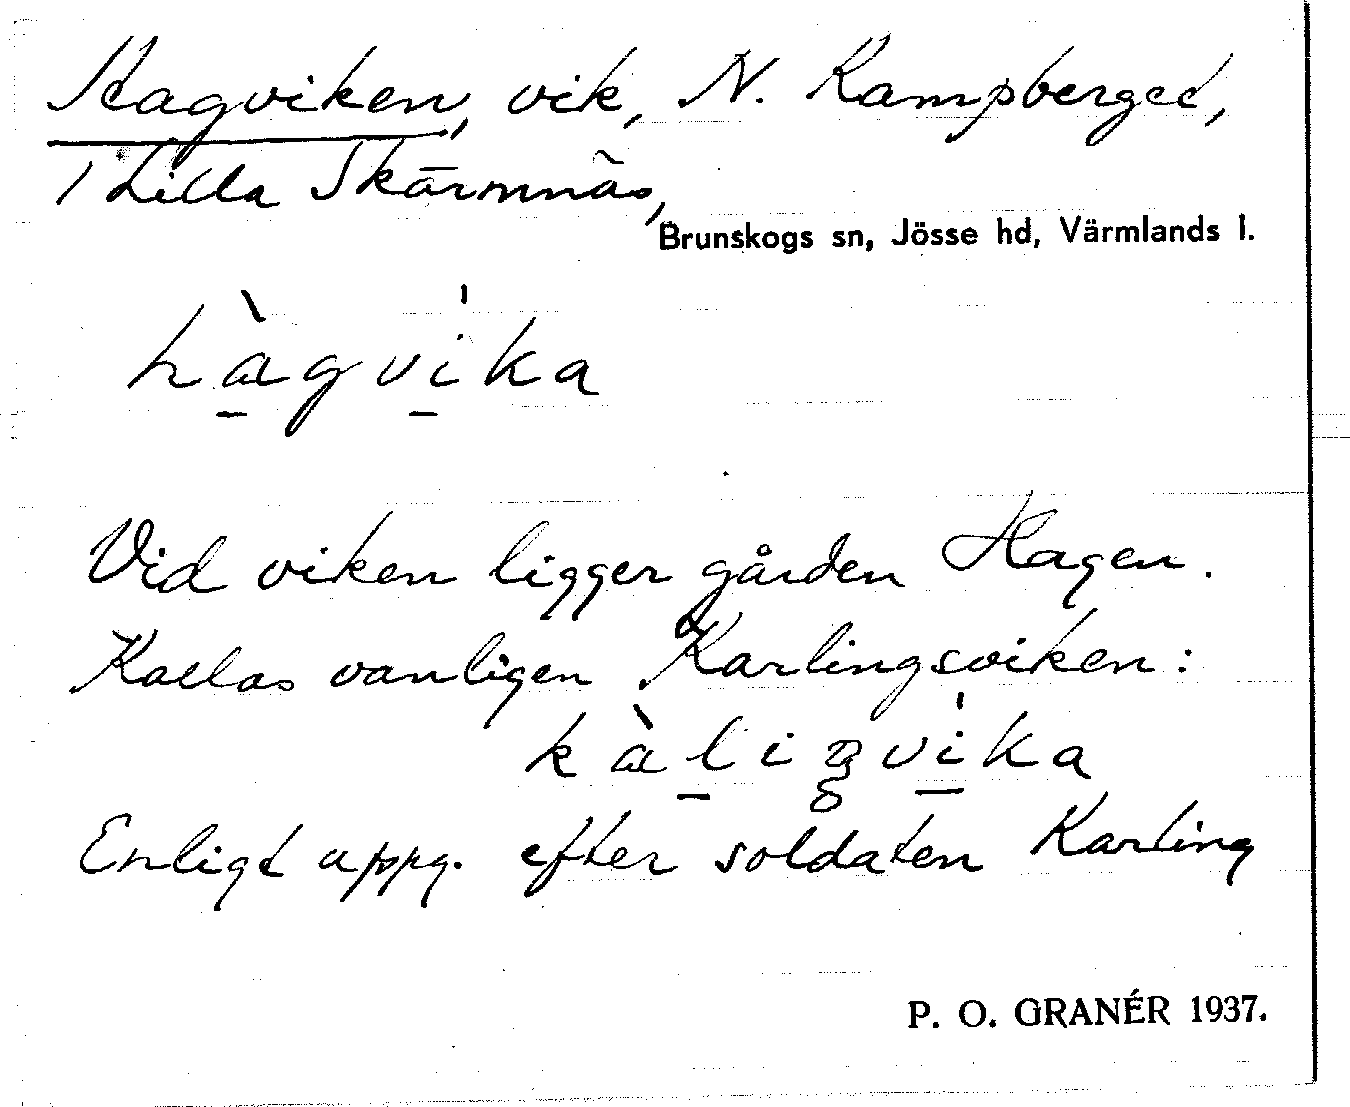 Hagviken, vik, N. Kampberget,
/ Lilla Skärmnäs,
Brunskogs sn, Jösse hd, Värmlands l.
hàgvi̍ka
Vid viken ligger gården Hagen.
Kallas vanligen Karlingsviken:
kàliŋvi̍ka
Enligt uppg. efter soldaten Karling
P. O. GRANÉR 1937.